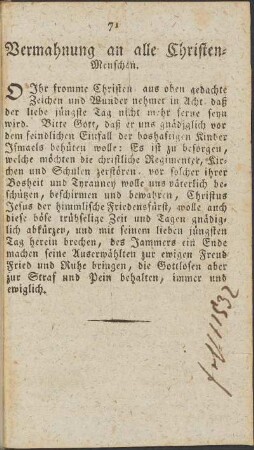 71
Vermahnung an alle Christen-
Menschen.
O Ihr fromme Christen aus oben gedachte
Zeichen und Wunder nehmet in Acht. daß
der liebe jüngste Tag nicht mehr ferne seyn
wird. Bitte Gott, daß er uns gnädiglich vor
dem feindlichen Einfall der boshaftigen Kinder
Ismaels behüten wolle: Es ist zu besorgen,
welche möchten die christliche Regimenter, Kir-
chen und Schulen zerstören. vor solcher ihrer
Bosheit und Tyranney wolle uns väterlich be-
schützen, beschirmen und bewahren, Christus
Jesus der himmlische Friedensfürst, wolle auch
diese böse trühselige Zeit und Tagen gnädig-
lich abkürzen, und mit seinem lieben jüngsten
Tag herein brechen, des Jammers ein Ende
machen seine Auserwählten zur ewigen Freud
Fried und Ruhe bringen, die Gottlosen aber
zur Straf und Pein behalten, immer und
ewiglich.